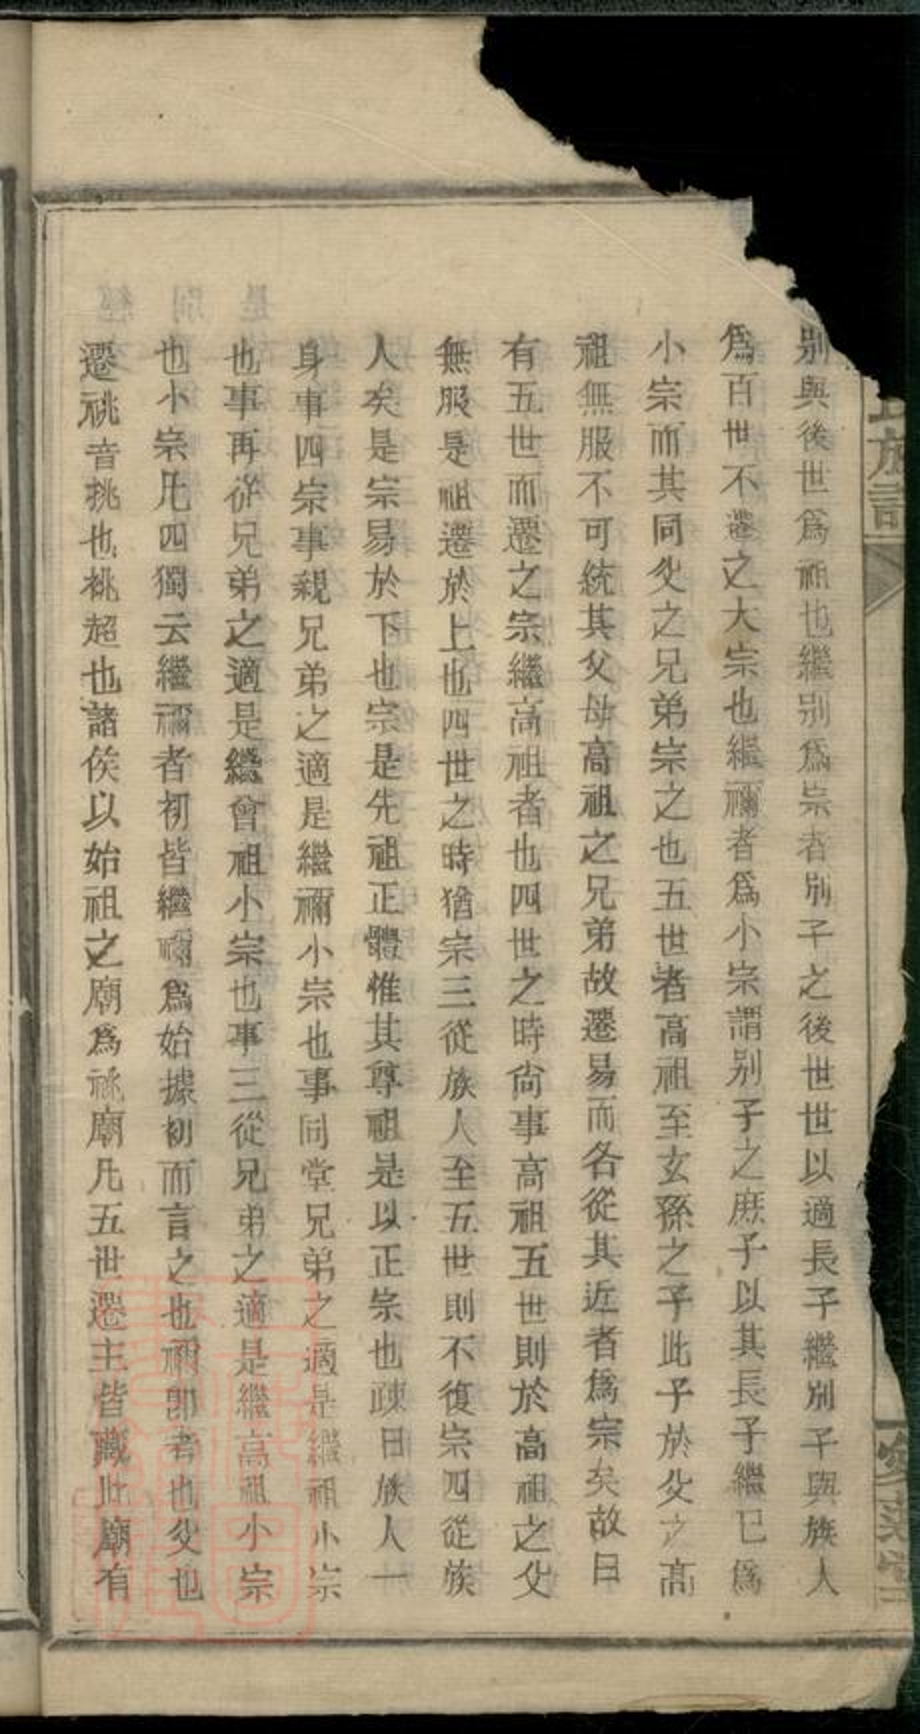 氏族譜
別與後世爲祖也繼別爲宗者別子之後世世以適長子繼別子與族人
爲百世不遷之大宗也繼禰者爲小宗謂別子之庶子以其長子繼已爲
小宗而其同父之兄弟宗之也五世者高祖至玄孫之子此子於父之高
祖無服不可統其父母高祖之兄弟故遷易而各從其近者爲宗矣故曰
有五世而遷之宗繼高祖者也四世之時尙事高祖五世則於高祖之父
無服是祖遷於上也四世之時猶宗三從族人至五世則不復宗四從族
人矣是宗易於下也宗是先祖正體惟其尊祖是以正宗也疎曰族人一
身事四宗事親兄弟之適是繼禰小宗也事同堂兄弟之適是繼祖小宗
也事再從兄弟之適是繼會祖小宗也事三從兄弟之適是繼高祖小宗
也小宗凡四獨云繼禰者初皆繼禰爲始據初而言之也禰卽者也父也
遷祧音挑也桃超也諸侯以始祖之廟爲祧廟凡五世遷主皆藏此廟有